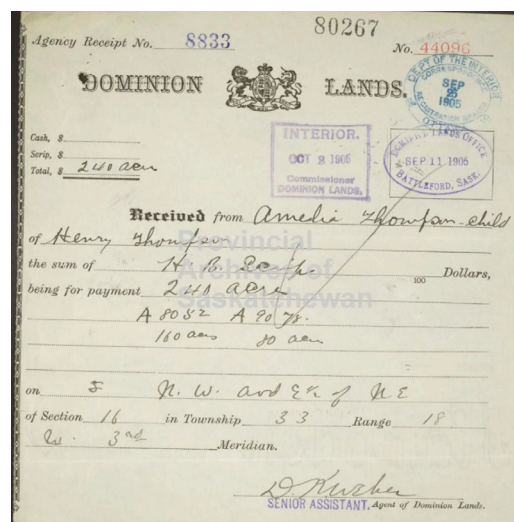 80267
Agency Receipt No. 8833
No. 44096
DOMINION LANDS.
DEPT OF THE INTERIOR
CORRESPONDENCE
SEP
1905
REGISTRATION
OTTAWA
INTERIOR.
OCT 2 1905
Commissioner
DOMINION LANDS.
DOMINION LANDS OFFICE
SEP 11 1905
BATTLEFORD, SASK.
Cash, $
Scrip, $
Total, $ 240 acres
Received from Amelia Thompson-child
of Henry Thompson
the sum of H B Scrip 100 Dollars,
being for payment 240 acres
A 8052 A 9078.
160 acres 80 acres
on N. W. and E½ of N E
of Section 16 in Township 33 Range 18
W. 3rd Meridian.
SENIOR ASSISTANT, Agent of Dominion Lands.
Provincial
Archives of
Saskatchewan